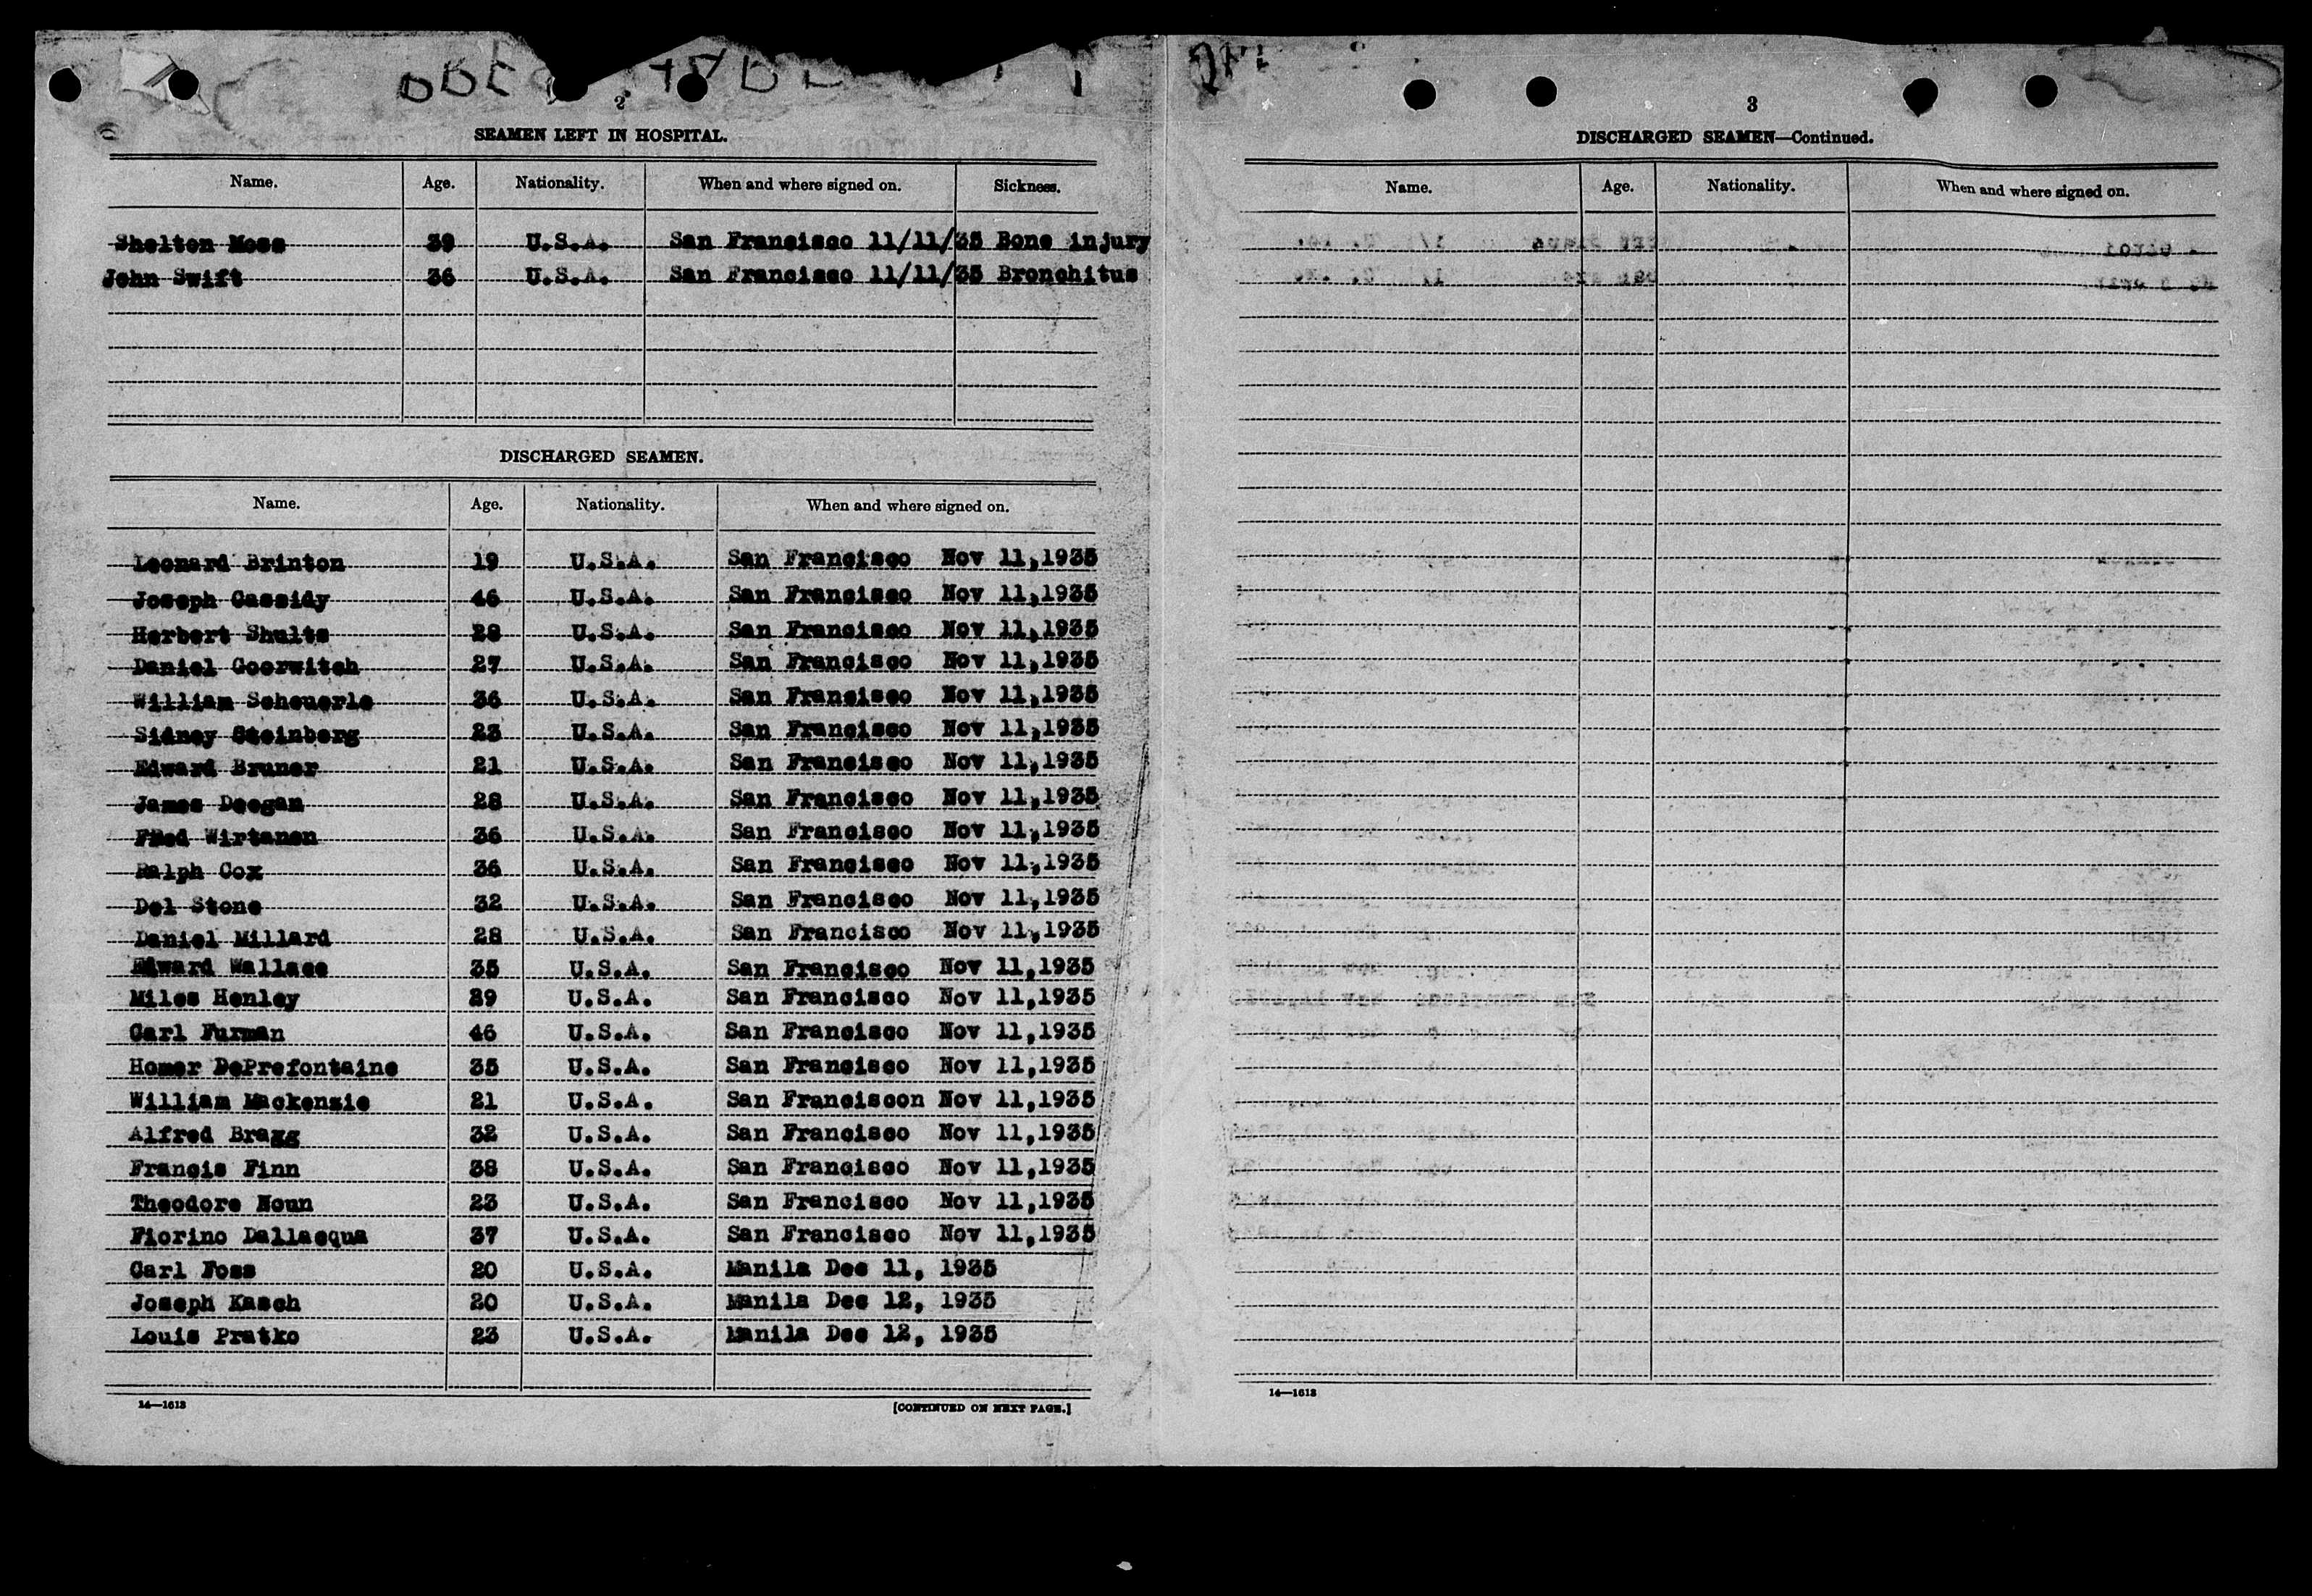 2
SEAMEN LEFT IN HOSPITAL.
Name. Age. Nationality. When and where signed on. Sickness.
Shelton Moss 39 U.S.A. San Francisco 11/11/35 Bone injury
John Swift 36 U.S.A. San Francisco 11/11/35 Bronchitus
DISCHARGED SEAMEN.
Name. Age. Nationality. When and where signed on.
Leonard Brinton 19 U.S.A. San Francisco Nov 11,1935
Joseph Cassidy 46 U.S.A. San Francisco Nov 11,1935
Herbert Shults 28 U.S.A. San Francisco Nov 11,1935
Daniel Goorwitch 27 U.S.A. San Francisco Nov 11,1935
William Scheuerle 36 U.S.A. San Francisco Nov 11,1935
Sidney Steinberg 23 U.S.A. San Francisco Nov 11,1935
Edward Bruner 21 U.S.A. San Francisco Nov 11,1935
James Deegan 28 U.S.A. San Francisco Nov 11,1935
Fred Wirtanen 36 U.S.A. San Francisco Nov 11,1935
Ralph Cox 36 U.S.A. San Francisco Nov 11,1935
Del Stone 32 U.S.A. San Francisco Nov 11,1935
Daniel Millard 28 U.S.A. San Francisco Nov 11,1935
Edward Wallace 35 U.S.A. San Francisco Nov 11,1935
Miles Henley 29 U.S.A. San Francisco Nov 11,1935
Carl Furman 46 U.S.A. San Francisco Nov 11,1935
Homer DePrefontaine 35 U.S.A. San Francisco Nov 11,1935
William Mackenzie 21 U.S.A. San Franciscon Nov 11,1935
Alfred Bragg 32 U.S.A. San Francisco Nov 11,1935
Francis Finn 38 U.S.A. San Francisco Nov 11,1935
Theodore Noun 23 U.S.A. San Francisco Nov 11,1935
Fiorino Dallacqua 37 U.S.A. San Francisco Nov 11,1935
Carl Foss 20 U.S.A. Manila Dec 11, 1935
Joseph Kasch 20 U.S.A. Manila Dec 12, 1935
Louis Pratko 23 U.S.A. Manila Dec 12, 1935
14—1613 [CONTINUED ON NEXT PAGE.]
3
DISCHARGED SEAMEN—Continued.
Name. Age. Nationality. When and where signed on.
14—1613